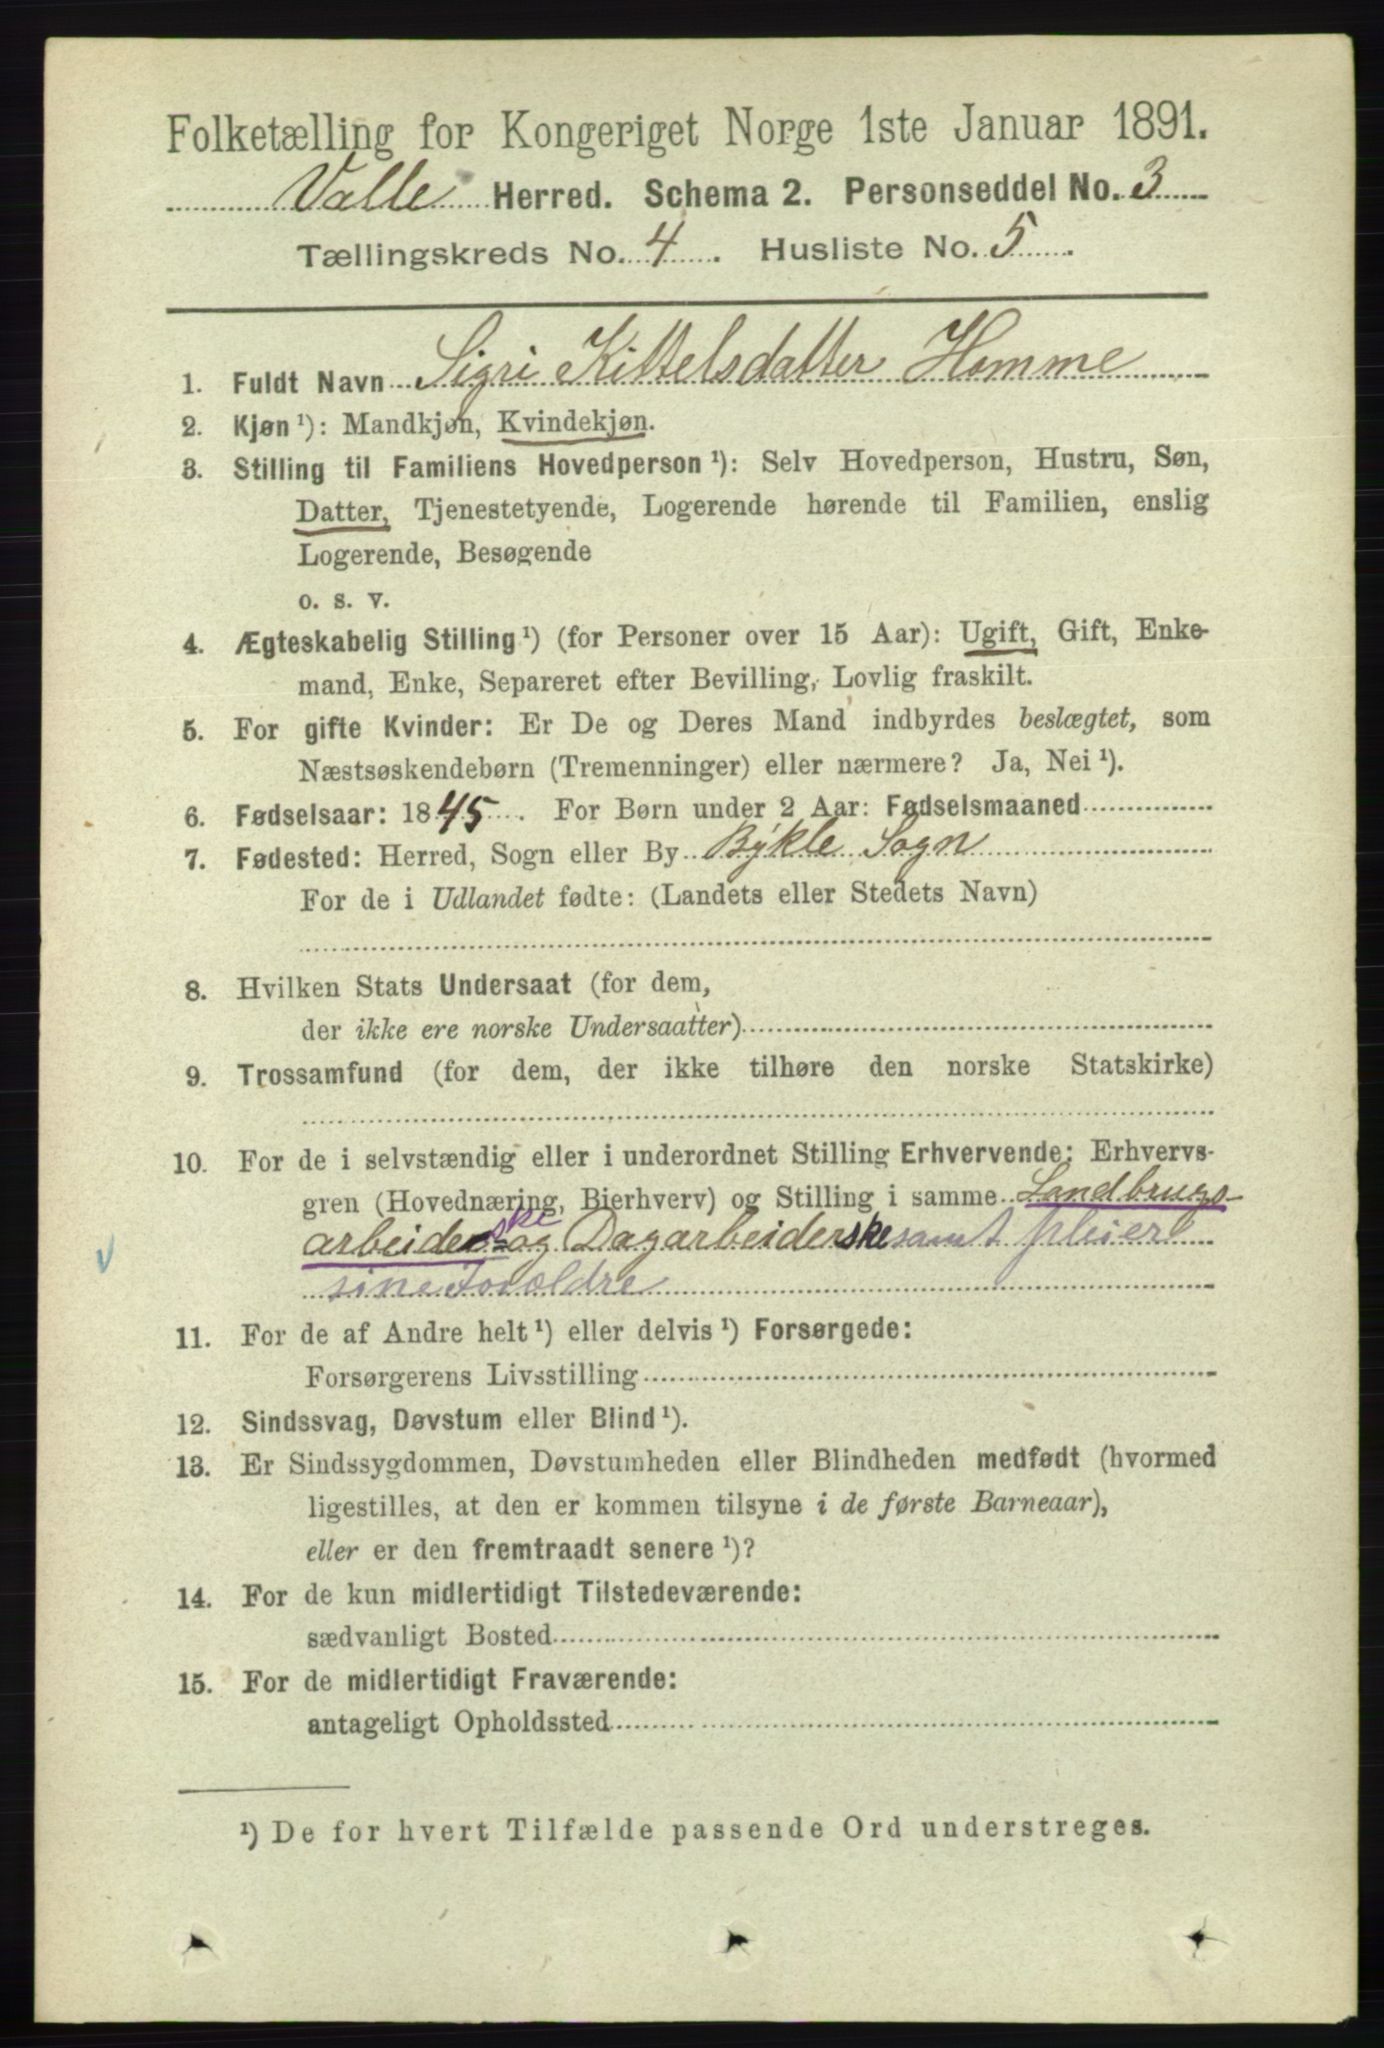 Folketælling for Kongeriget Norge 1ste Januar 1891.
Valle Herred. Schema 2. Personseddel No. 3
Tællingskreds No. 4. Husliste No. 5.
1. Fuldt Navn Sigri Kittelsdatter Homme
2. Kjøn ¹): Mandkjøn, Kvindekjøn.
3. Stilling til Familiens Hovedperson ¹): Selv Hovedperson, Hustru, Søn,
Datter, Tjenestetyende, Logerende hørende til Familien, enslig
Logerende, Besøgende
o. s. v.
4. Ægteskabelig Stilling ¹) (for Personer over 15 Aar): Ugift, Gift, Enke-
mand, Enke, Separeret efter Bevilling, Lovlig fraskilt.
5. For gifte Kvinder: Er De og Deres Mand indbyrdes beslægtet, som
Næstsøskendebørn (Tremenninger) eller nærmere? Ja, Nei ¹).
6. Fødselsaar: 1845. For Børn under 2 Aar: Fødselsmaaned
7. Fødested: Herred, Sogn eller By Bykle Sogn
For de i Udlandet fødte: (Landets eller Stedets Navn)
8. Hvilken Stats Undersaat (for dem,
der ikke ere norske Undersaatter)
9. Trossamfund (for dem, der ikke tilhøre den norske Statskirke)
10. For de i selvstændig eller i underordnet Stilling Erhvervende: Erhvervs-
gren (Hovednæring, Bierhverv) og Stilling i samme Landbrugs-
arbeiderske og Dagarbeiderske samt pleier
sine Forældre
11. For de af Andre helt ¹) eller delvis ¹) Forsørgede:
Forsørgerens Livsstilling
12. Sindssvag, Døvstum eller Blind ¹).
13. Er Sindssygdommen, Døvstumheden eller Blindheden medfødt (hvormed
ligestilles, at den er kommen tilsyne i de første Barneaar),
eller er den fremtraadt senere ¹)?
14. For de kun midlertidigt Tilstedeværende:
sædvanligt Bosted
15. For de midlertidigt Fraværende:
antageligt Opholdssted
¹) De for hvert Tilfælde passende Ord understreges.